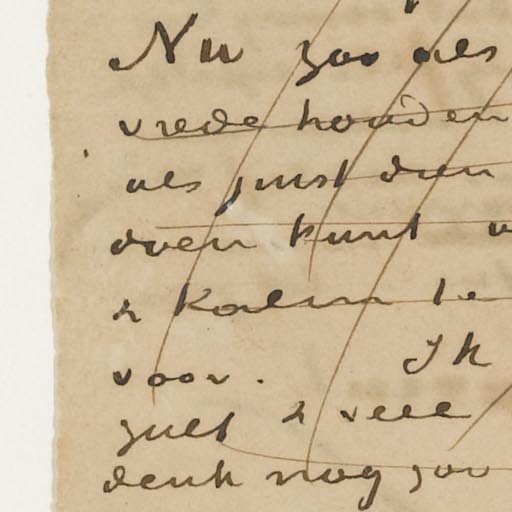 Nu zoo als
vrede houden
als juist dien
doen kunt
& kalm te
voor. Ik
zult & veel
denk nog zoo